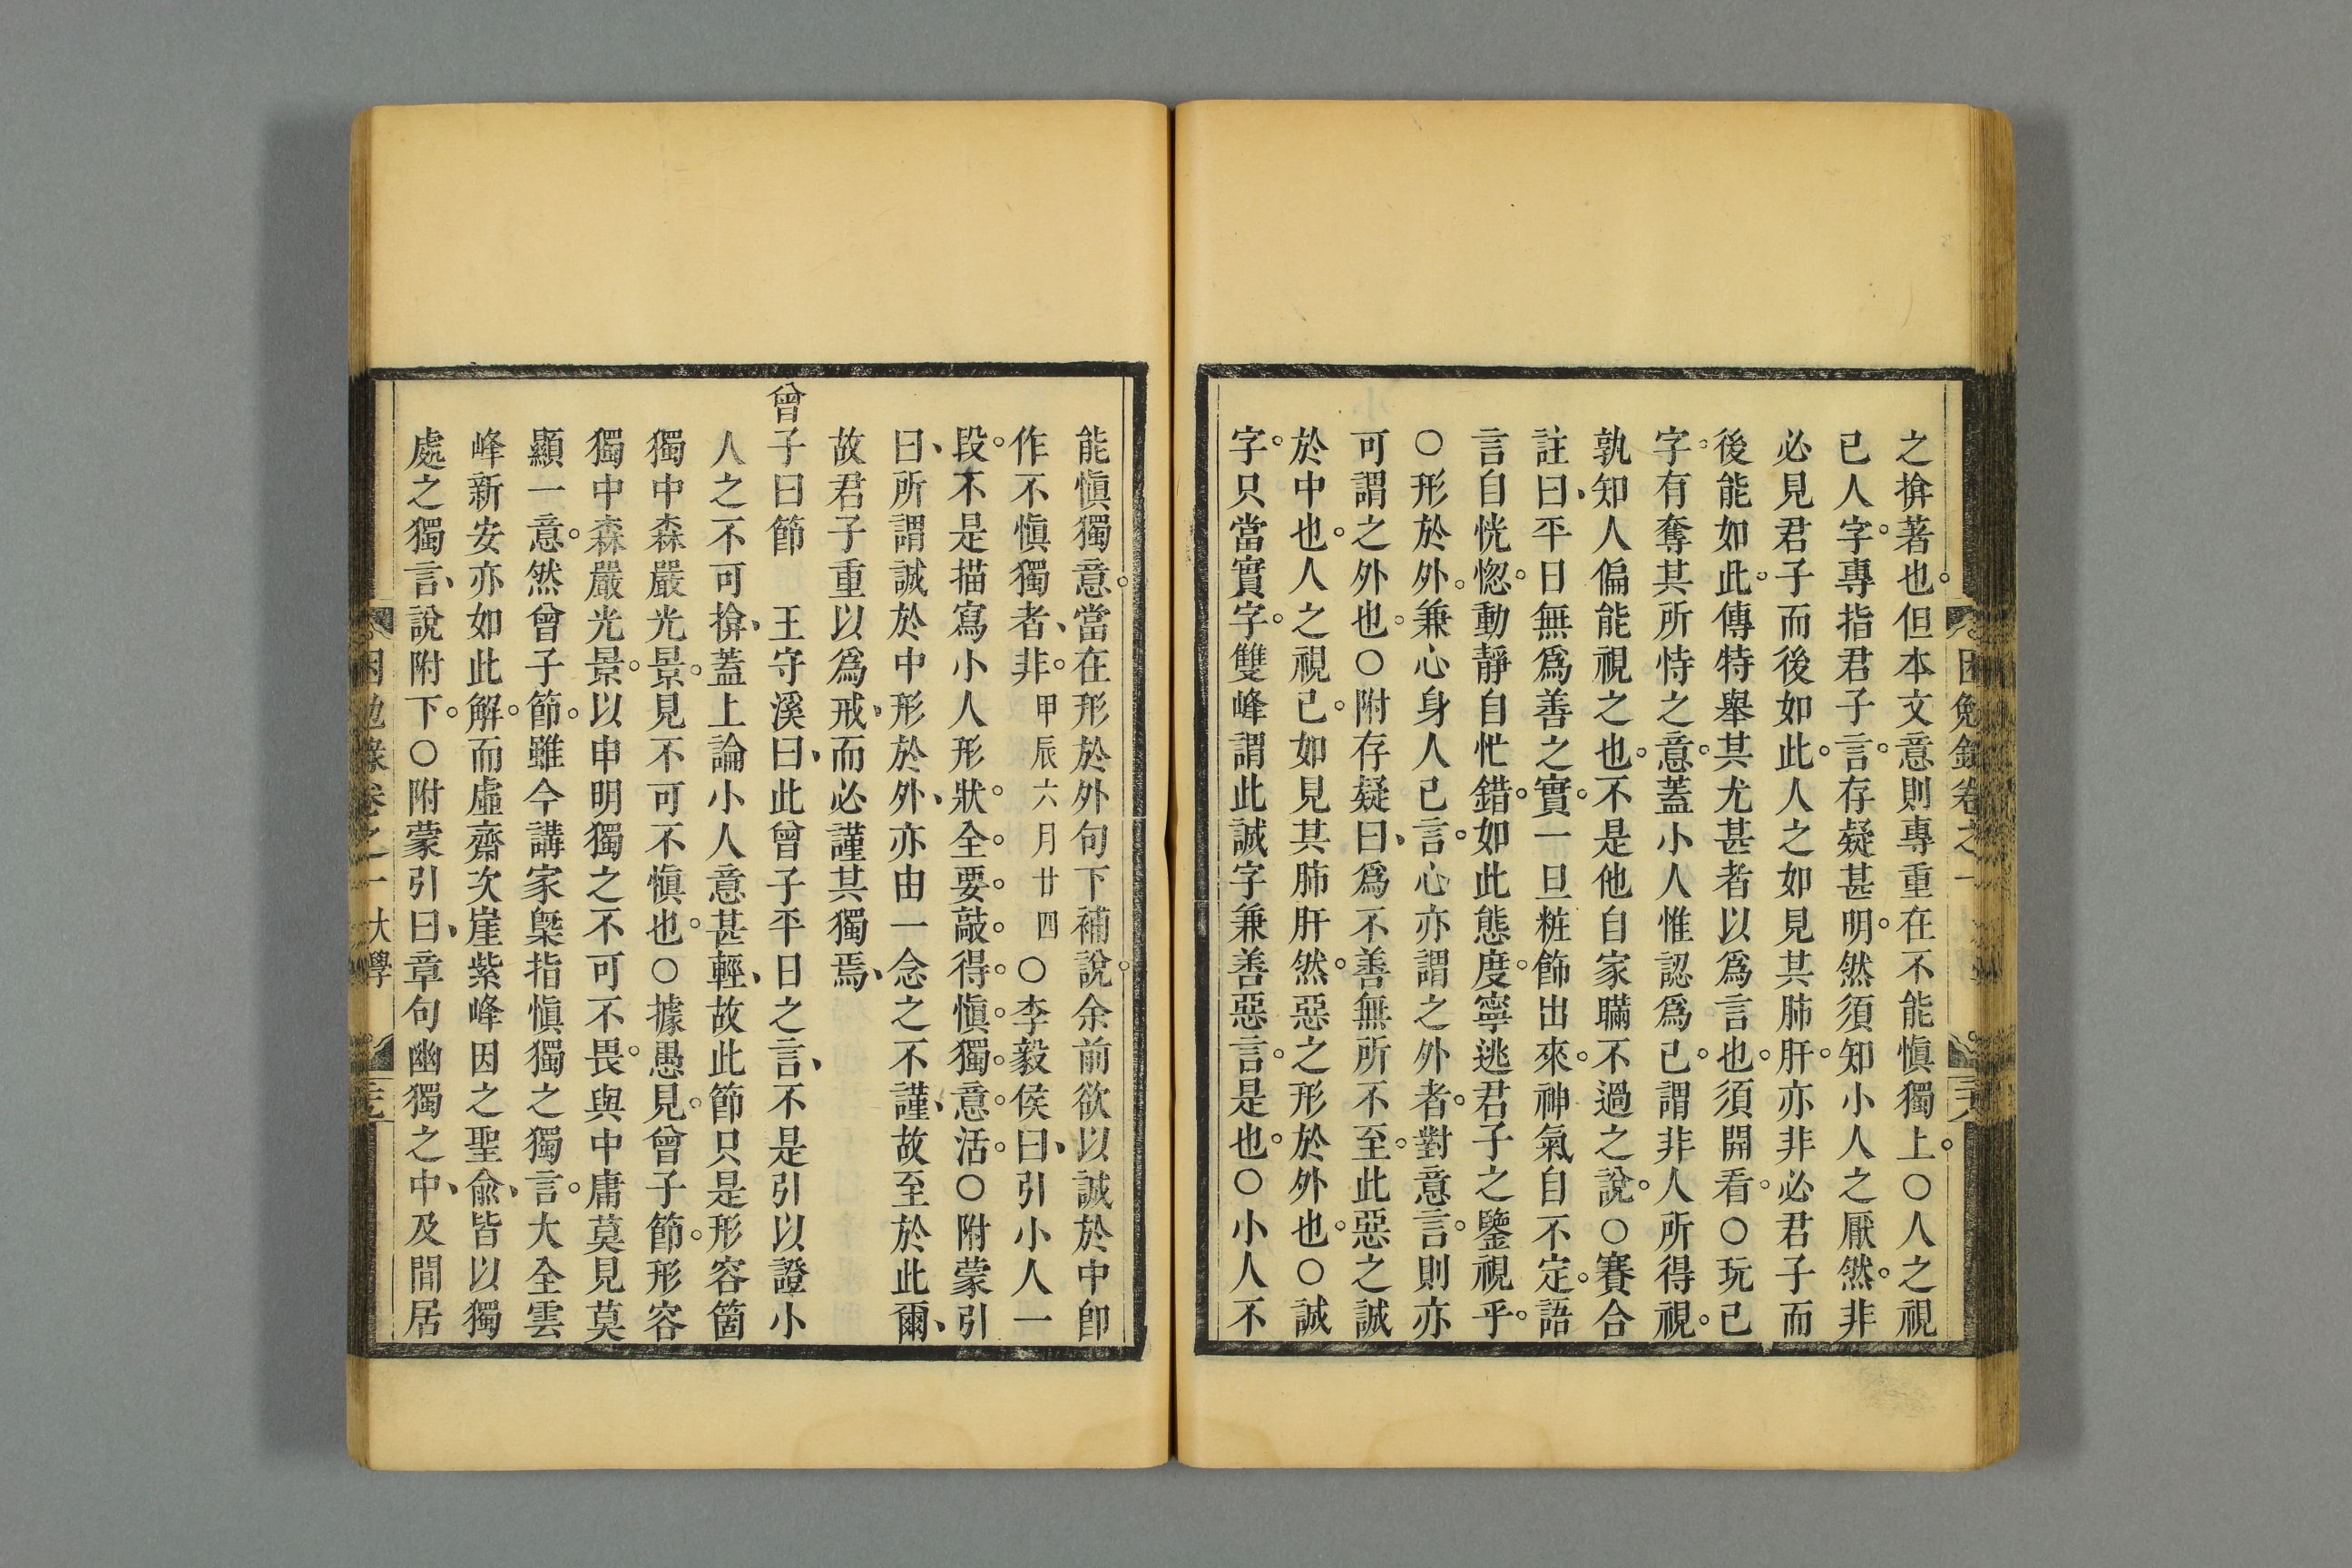 困勉錄卷之一
之揜著也。但本文意則專重在不能愼獨上。○人之視
己人字。專指君子言。存疑甚明。然須知小人之厭然。非
必見君子而後如此。人之如見其肺肝。亦非必君子而
後能如此。傳特舉其尤甚者以爲言也。須開看。○玩己
字。有奪其所恃之意。蓋小人惟認爲己。謂非人所得視。
孰知人偏能視之也。不是他自家瞞不過之說。○賽合
註曰、平日無爲善之實。一旦粧飾出來。神氣自不定。語
言自恍惚。動靜自忙錯。如此態度。寧逃君子之鑒視乎。
○形於外。兼心身人己言。心亦謂之外者。對意言。則亦
可謂之外也。○附存疑曰、爲不善無所不至。此惡之誠
於中也。人之視己。如見其肺肝然。惡之形於外也。○誠
字。只當實字。雙峰謂此誠字兼善惡言。是也。○小人不
能愼獨意。當在形於外句下補說。余前欲以誠於中卽
作不愼獨者、非。甲辰六月廿四○李毅侯曰、引小人一
段。不是描寫小人形狀。全。要。敲。得。愼。獨。意。活。○附蒙引
曰、所謂誠於中形於外、亦由一念之不謹、故至於此爾、
故君子重以爲戒、而必謹其獨焉、
曾子曰節　王守溪曰、此曾子平日之言、不是引以證小
人之不可揜、蓋上論小人意甚輕、故此節只是形容箇
獨中森嚴光景。見不可不愼也。○據愚見。曾子節。形容
獨中森嚴光景。以申明獨之不可不畏。與中庸莫見莫
顯一意。然曾子節。雖今講家槩指愼獨之獨言。大全雲
峰新安亦如此解。而虛齋次崖紫峰因之聖兪、皆以獨
處之獨言、說附下。○附蒙引曰、章句幽獨之中、及閒居
困勉錄卷之一　大學